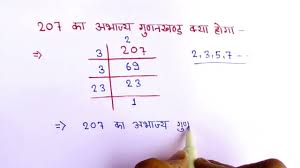 207 का अभाज्य गुणनखण्ड क्या होगा -
2
⇒ 3 | 207 2, 3, 5, 7 - - -
3 | 69
23 | 23
1
⇒ 207 का अभाज्य गुण